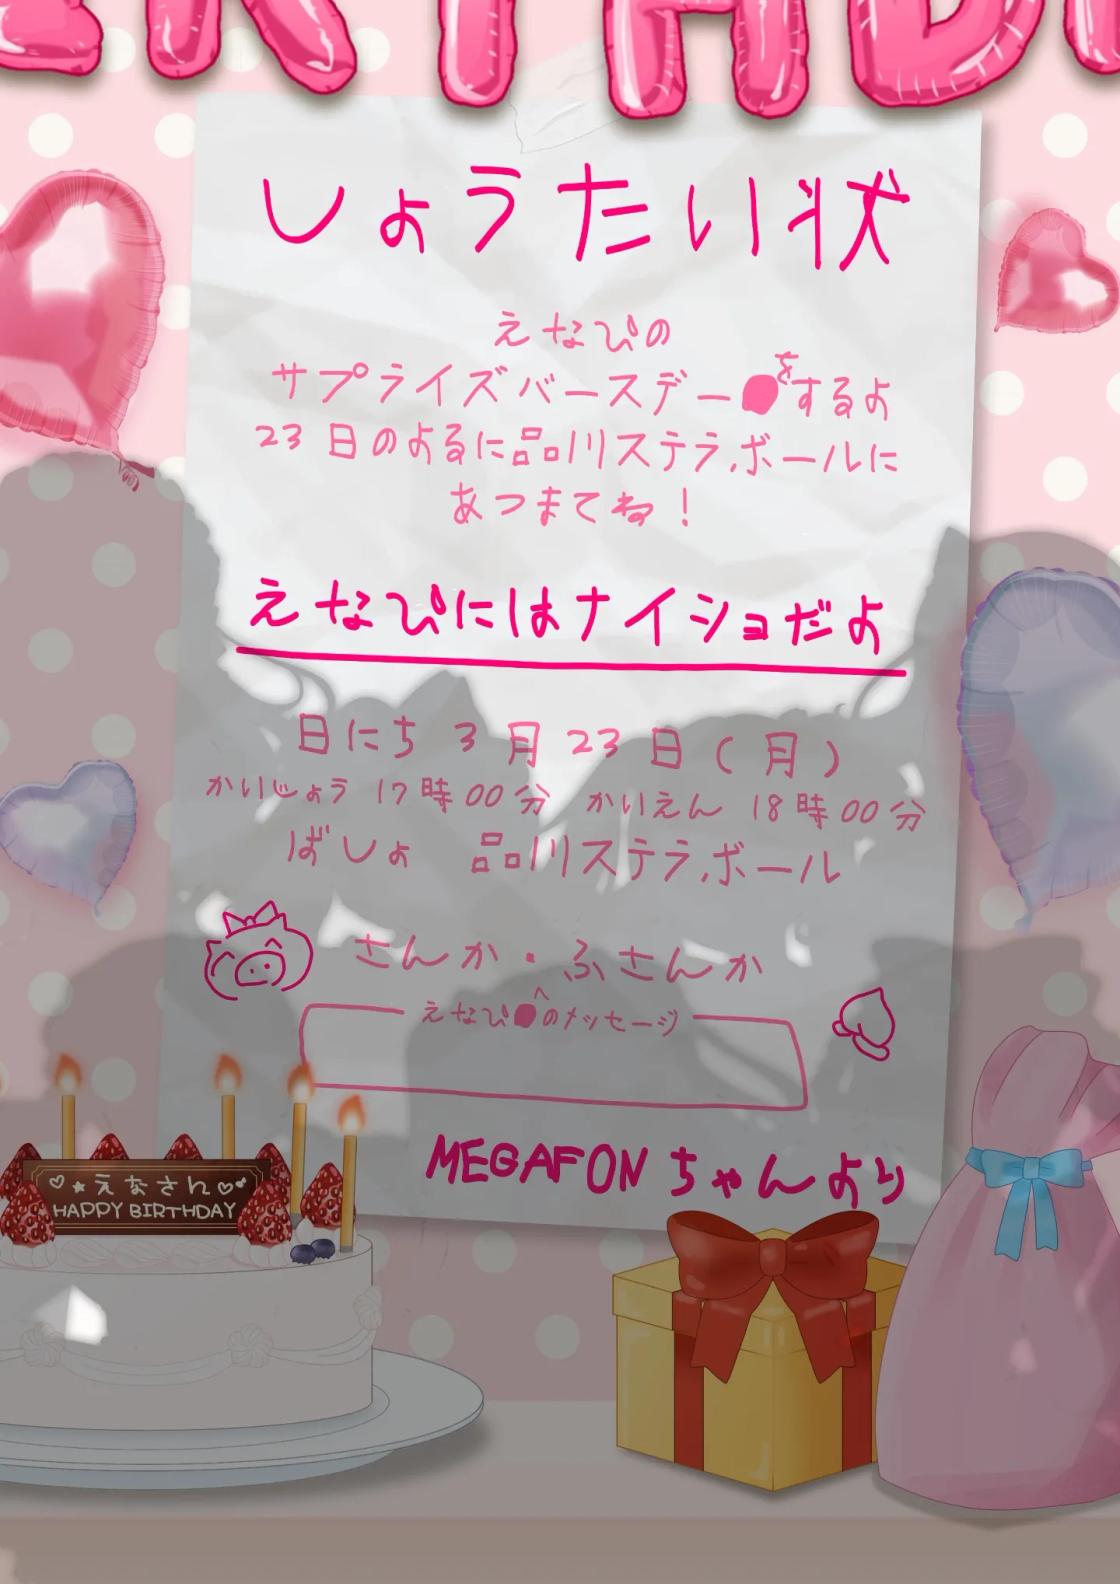 BIRTHDA
しょうたい状
えなぴの
サプライズバースデーをするよ
23日のよるに品川ステラボールに
あつまてね！
えなぴにはナイショだよ
日にち 3月23日(月)
かいじょう 17時00分 かいえん 18時00分
ばしょ 品川ステラボール
さんか・ふさんか
えなぴへのメッセージ
MEGAFONちゃんより
♡★えなさん♡
HAPPY BIRTHDAY